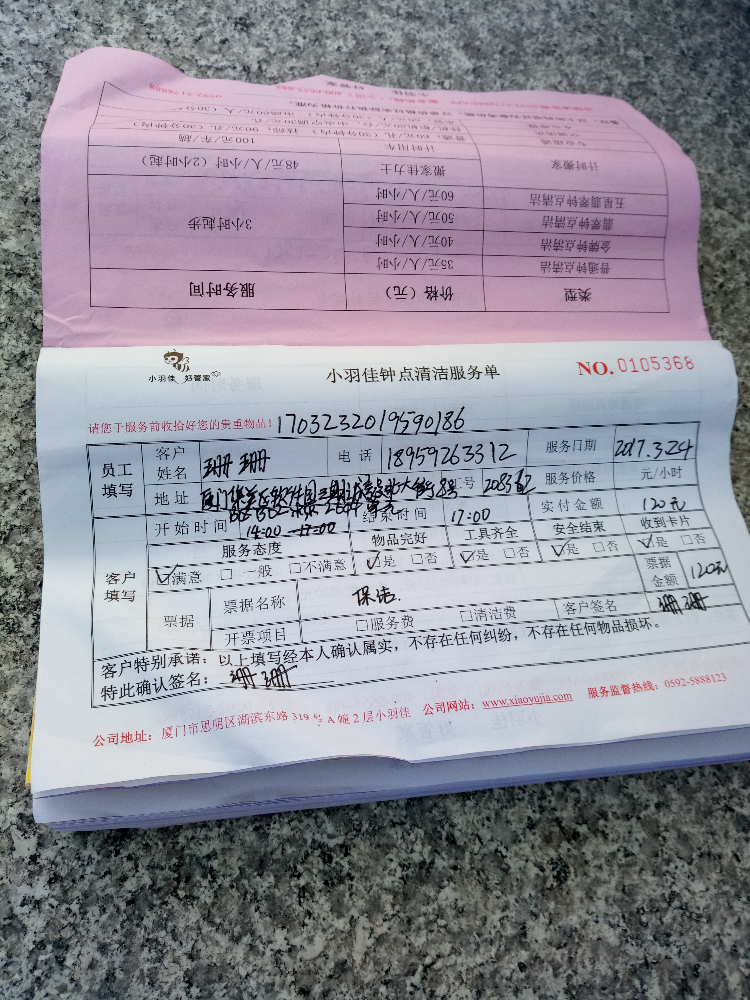 类型 价格（元） 服务时间
普通钟点清洁 35元/人/小时 3小时起步
金牌钟点清洁 40元/人/小时
翡翠钟点清洁 50元/人/小时
五星翡翠钟点清洁 60元/人/小时
计时搬家 搬家佳力士 48元/人/小时（2小时起）
计时用车 100元/车/趟
小羽佳 好管家
小羽佳钟点清洁服务单
NO.0105368
请您于服务前收拾好您的贵重物品！ 1703232019590186
员工填写 客户姓名 珊珊 电话 18959263312 服务日期 2017.3.24
地址 服务价格 元/小时
客户填写 开始时间 14:00-17:00 结束时间 17:00 实付金额 120元
服务态度 物品完好 工具齐全 安全结束 收到卡片
☑满意 □一般 □不满意 ☑是 □否 ☑是 □否 ☑是 □否 ☑是 □否
票据 票据名称 保洁 票据金额 120元
开票项目 □服务费 □清洁费 客户签名 珊珊
客户特别承诺：以上填写经本人确认属实，不存在任何纠纷，不存在任何物品损坏。
特此确认签名： 珊珊
公司地址：厦门市思明区湖滨东路319号A幢2层小羽佳 公司网站：www.xiaoyujia.com 服务监督热线：0592-5888123